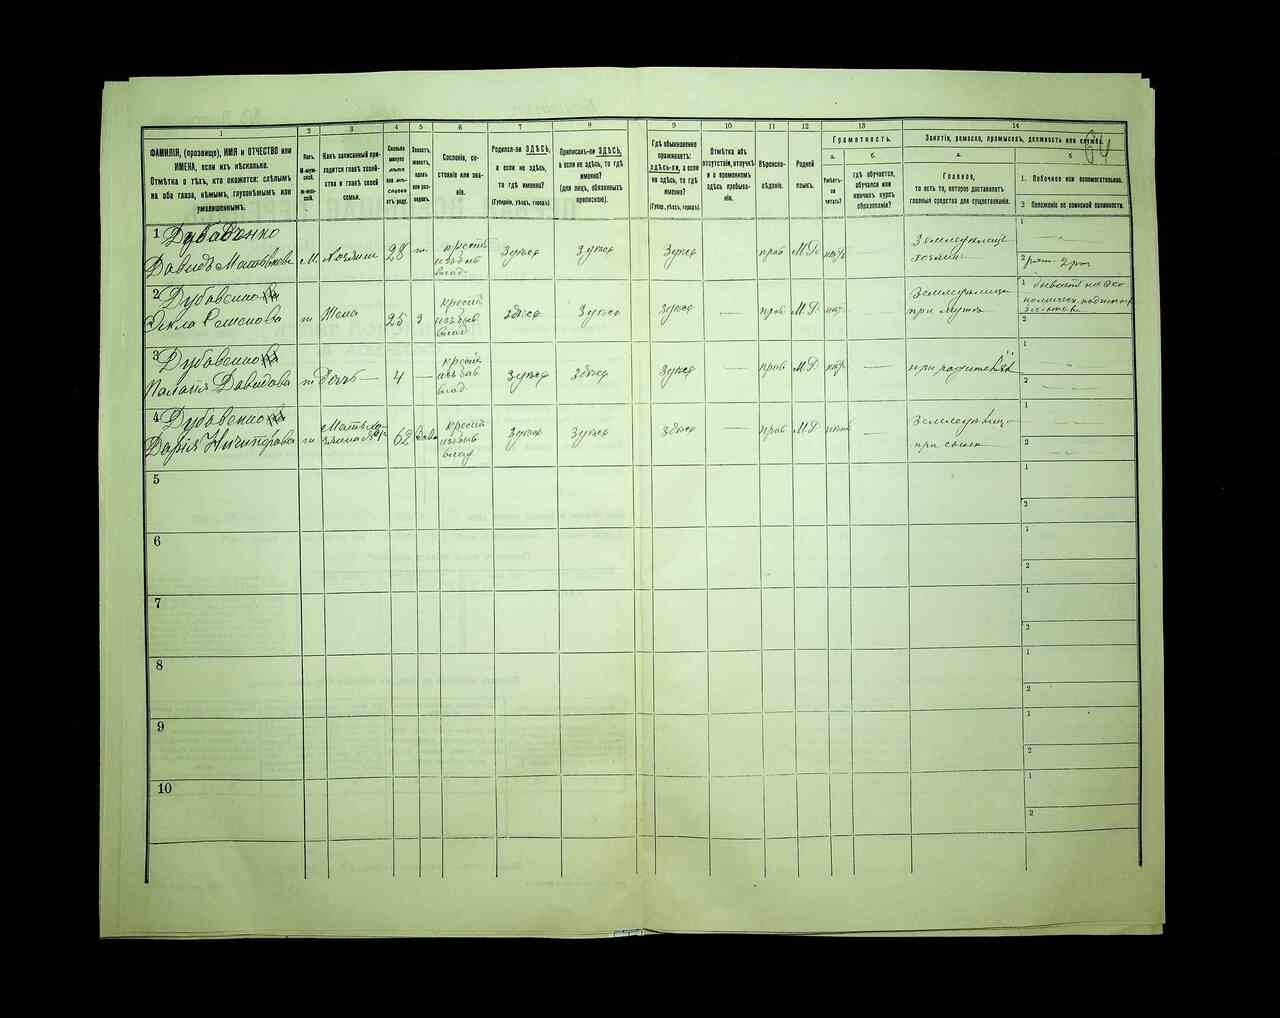 1
2
3
4
5
6
7
8
9
10
11
12
13
14
ФАМИЛІЯ, (прозвище), ИМЯ и ОТЧЕСТВО или
ИМЕНА, если ихъ нѣсколько.
Отмѣтка о тѣхъ, кто окажется: слѣпымъ
на оба глаза, нѣмымъ, глухонѣмымъ или
умалишеннымъ.
Полъ.
М-муж-
ской.
Ж-жен-
скій.
Какъ записанный при-
ходится главѣ хозяй-
ства и главѣ своей
семьи.
Сколько
минуло
лѣтъ
или мѣ-
сяцевъ
отъ роду.
Холостъ,
женатъ,
вдовъ
или раз-
веденъ.
Сословіе, со-
стояніе или зва-
ніе.
Родился-ли ЗДѢСЬ,
а если не здѣсь,
то гдѣ именно?
(Губернія, уѣздъ, городъ).
Приписанъ-ли ЗДѢСЬ,
а если не здѣсь, то гдѣ
именно?
(для лицъ, обязанныхъ
припискою).
Гдѣ обыкновенно
проживаетъ:
здѣсь-ли, а если
не здѣсь, то гдѣ
именно?
(Губер.,уѣздъ, городъ).
Отмѣтка объ
отсутствіи, отлучкѣ
и о временномъ
здѣсь пребыва-
ніи.
Вѣроиспо-
вѣданіе.
Родной
языкъ.
Грамотность.
а.
Умѣетъ-
ли
читать?
б.
гдѣ обучается,
обучался или
кончилъ курсъ
образованія?
Занятіе, ремесло, промыселъ, должность или служба.
64
а.
Главное,
то есть то, которое доставляетъ
главныя средства для существованія.
б.
1. Побочное или вспомогательное.
2 Положеніе по воинской повинности.
1 Дубавенко
Давидъ Матвѣевъ
М. Хозяин 28 ж. крестъ
изъ быв
влад.
здѣсь здѣсь здѣсь прав М.Р.
Земледѣлецъ
хозяин
1 —
2
2 Дубавенко
Фекла Семенова
ж Жена 25 З крест
изъ быв
влад
здѣсь здѣсь здѣсь — прав М.Р.
Земледѣлица
при мужѣ
1
2
3 Дубавенко
Палагія Давидова
ж Дочь — 4 — крестъ
изъ быв
влад
здѣсь здѣсь здѣсь — прав М.Р. —
при родителяхъ
1 —
2 —
4 Дубавенко
Дарія Ничипорова
ж Мать хо-
62 вдова крест
изъ быв
влад
здѣсь здѣсь здѣсь — прав М.Р. —
при сынѣ
1 —
2 —
5
1
2
6
1
2
7
1
2
8
1
2
9
1
2
10
1
2